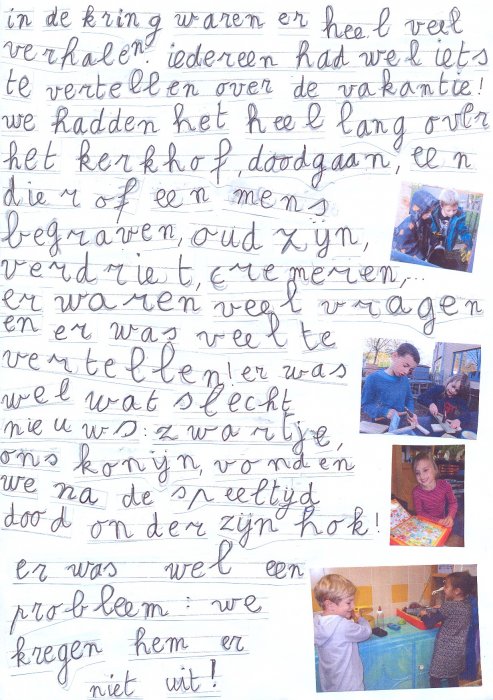 in de kring waren er heel veel
verhalen. iedereen had wel iets
te vertellen over de vakantie!
we hadden het heel lang over
het kerkhof, doodgaan, een
dier of een mens
begraven, oud zijn,
verdriet, cremeren,...
er waren veel vragen
en er was veel te
vertellen! er was
wel wat slecht
nieuws: zwartje,
ons konijn, vonden
we na de speeltijd
dood onder zijn hok!
er was wel een
probleem: we
kregen hem er
niet uit!